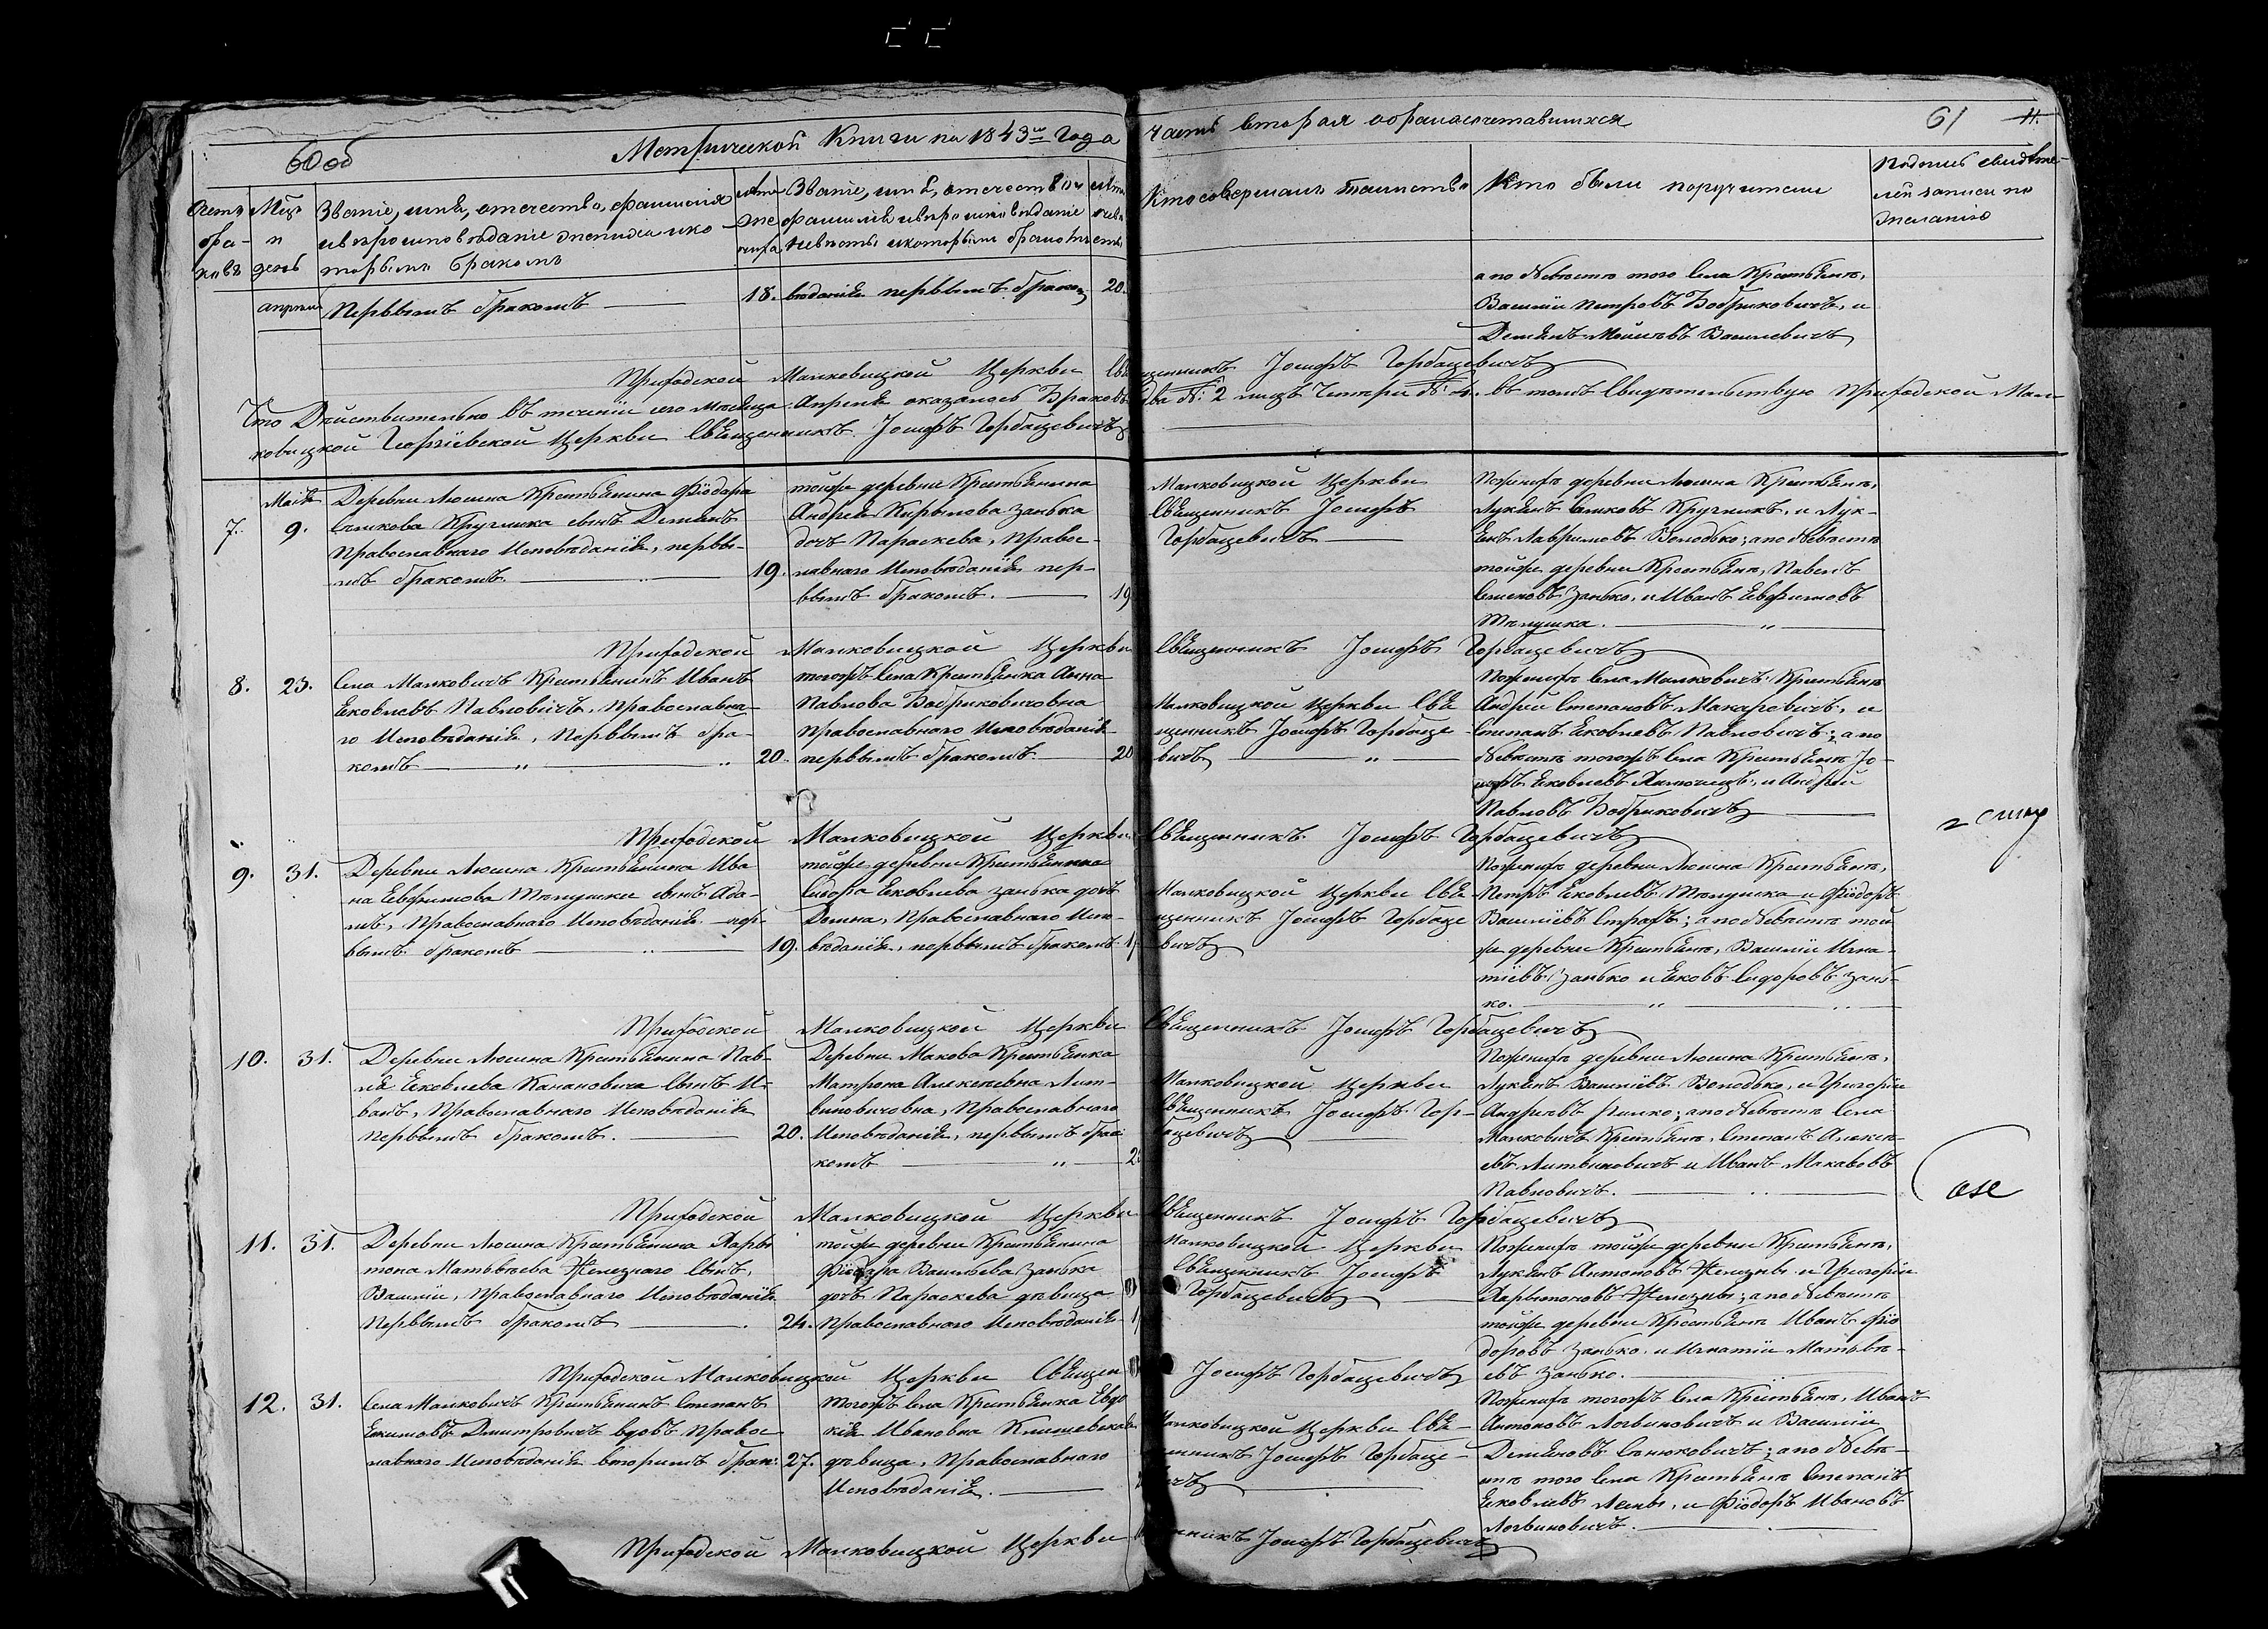 60 об
Метрической Книги на 1843й Года
часть вторая о бракосочетавшихся
61
11.
Счетъ браковъ
Мѣсяцъ и день
Званіе, имя, отечество, фамилія
и вѣроисповѣданіе жениха и ко-
торымъ бракомъ
лѣта жениха
Званіе, имя, отечество и
фамилія и вѣроисповѣданіе
невѣсты и которымъ бракомъ
лѣта невѣсты
Кто совершалъ таинство
Кто были поручители
Подпись свидѣте-
лей записи по
желанію
апрель
Первымъ бракомъ
18.
вѣданія первымъ браком
20.
а по Невѣстѣ того Села Крестьяне,
Василій Петровъ Бобриковичъ, и
Демьянъ Василевичъ
Приходской Малковицкой Церкви Священникъ Іосифъ Горбацевичъ
Что Действительно въ теченіи сего Мѣсяца Апреля оказалось Браковъ два №: 2 лицъ Четыри №: 4. въ томъ Свидѣтельствую Приходской Мал-
ковицкой Георгіевской Церкви Священникъ Іосифъ Горбацевичъ
7.
Маія
9.
Деревни Люсина Крестьянина Фіодора
Круглика сынъ Демьянъ
Православнаго Исповѣданія, первы-
мъ бракомъ.
19.
тойже деревни Крестьянина
Андрея Кирылова Занька
дочь Параскева, Правос-
лавнаго Исповѣданія пер-
вымъ бракомъ.
19
Малковицкой Церкви
Священникъ Іосифъ
Горбацевичъ
Поженихѣ деревни Люсина Крестьяне,
Лукьянъ Кругликъ, и Лук-
янъ Володько; а по Невѣстѣ
тойже деревни Крестьяне, Павелъ
Семеновъ Занько, и Иванъ Евфимовъ
Приходской Малковицкой Церкви Священникъ Іосифъ Горбацевичъ
8.
23.
Села Малковичъ Крестьянинъ Иванъ
Яковлевъ Павловичъ, Православна-
го Исповѣданія, Первымъ бра-
комъ
20.
тогожъ Села Крестьянка Анна
Павлова Бобриковичовна
Православнаго Исповѣданія
первымъ бракомъ.
20
Малковицкой Церкви Свя-
щенникъ Іосифъ Горбаце-
вичъ
Поженихѣ Села Малковичъ Крестьяне
Андрей Степановъ Макаревичъ, и
Степанъ Яковлевъ Павловичъ; а по
Невѣстѣ тогожъ Села Крестьяне Іо-
сифъ Яковлевъ и Андрей
Павловъ Бобриковичъ
Приходской Малковицкой Церкви Священникъ Іосифъ Горбацевичъ
9.
31.
Деревни Люсина Крестьянина Ива-
на Евфимова сынъ Ада-
мъ, Православнаго Исповѣданія пер-
вымъ бракомъ
19.
тойже деревни Крестьянина
Сидора Яковлева Занька дочь
Домна, Православнаго Испо-
вѣданія, первымъ бракомъ.
Малковицкой Церкви Свя-
щенникъ Іосифъ Горбаце-
вичъ
Поженихѣ деревни Люсина Крестьяне,
Петръ Яковлевъ и Фіодоръ
Василіевъ; а по Невѣстѣ той
же деревни Крестьяне, Василій Игна-
тіевъ Занько и Яковъ Сидоровъ Зань-
ко.
Приходской Малковицкой Церкви Священникъ Іосифъ Горбацевичъ
10.
31.
Деревни Люсина Крестьянина Пав-
ла Яковлева Канановича Сынъ И-
ванъ, Православнаго Исповѣданія
Первымъ бракомъ.
20.
Деревни Макова Крестьянка
Матрона Алексѣевна Лит-
виновичовна, Православнаго
Исповѣданія, первымъ бра-
комъ
Малковицкой Церкви
Священникъ Іосифъ Гор-
бацевичъ
Поженихѣ деревни Люсина Крестьяне,
Лукьянъ Василіевъ Володько, и Григорій
Андреевъ; а по Невѣстѣ Села
Малковичъ Крестьяне, Степанъ Алексѣ-
евъ Литвиновичъ и Иванъ
Павловичъ.
Приходской Малковицкой Церкви Священникъ Іосифъ Горбацевичъ
11.
31.
Деревни Люсина Крестьянина Хары-
тона Матвѣева Железнаго Сынъ,
Василій, Православнаго Исповѣданія
Первымъ бракомъ
24.
тойже деревни Крестьянина
Фіодора Василева Занька
дочь Пораскева дѣвица
Православнаго Исповѣданія
Малковицкой Церкви
Священникъ Іосифъ
Горбацевичъ
Поженихѣ тойже деревни Крестьяне,
Лукьянъ Антоновъ Железны и Григорій
Харытоновъ Железны; а по Невѣстѣ
тойже деревни Крестьяне Иванъ Фіо-
доровъ Занько и Игнатій Матвѣ-
евъ Занько.
Приходской Малковицкой Церкви Священ Іосифъ Горбацевичъ
12.
31.
Села Малковичъ Крестьянинъ Степанъ
Якимовъ Дмитровичъ вдовъ Правос-
лавнаго Исповѣданія вторымъ брак:
27.
тогожъ Села Крестьянка Евдо-
кія Ивановна
дѣвица, Православнаго
Исповѣданія.
Малковицкой Церкви Свя-
щенникъ Іосифъ Горбаце-
вичъ
Поженихѣ тогожъ Села Крестьяне, Иванъ
Антоновъ Логвиновичъ и Василій
Демьяновъ Сенюковичъ; а по Невѣ-
стѣ того Села Крестьяне Степанъ
Яковлевъ и Фіодоръ Ивановъ
Логвиновичъ.
Приходской Малковицкой Церкви Священникъ Іосифъ Горбацевичъ